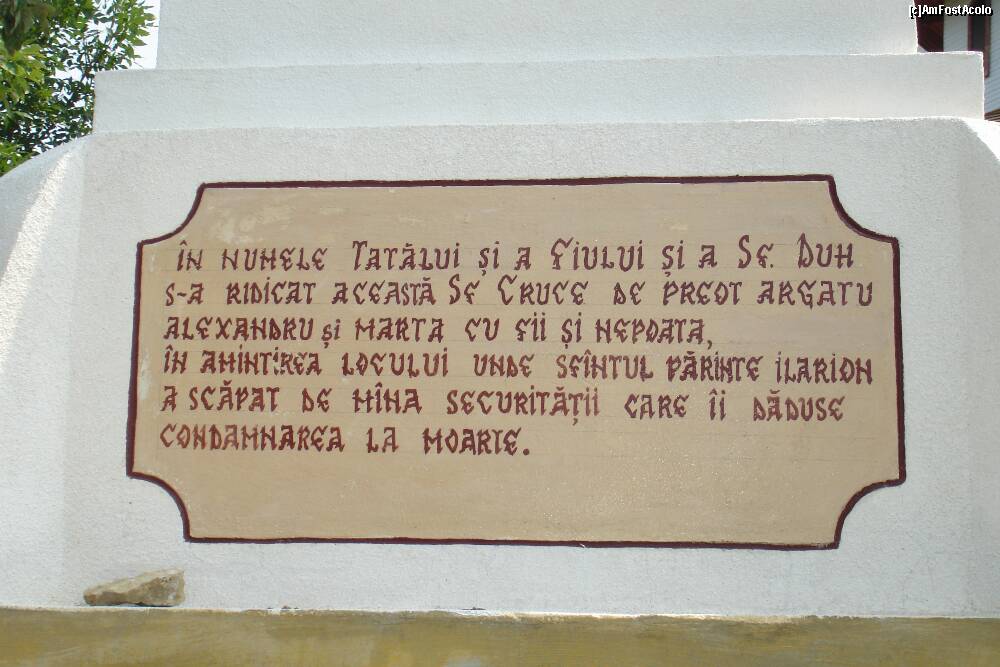 (c)AmFostAcolo
În numele Tatălui și a Fiului și a Sf. Duh
s-a ridicat această Sf Cruce de preot Argatu
Alexandru și Marta cu fii și nepoata,
în amintirea locului unde Sfîntul Părinte Ilarion
a scăpat de mîna securității care îi dăduse
condamnarea la moarte.